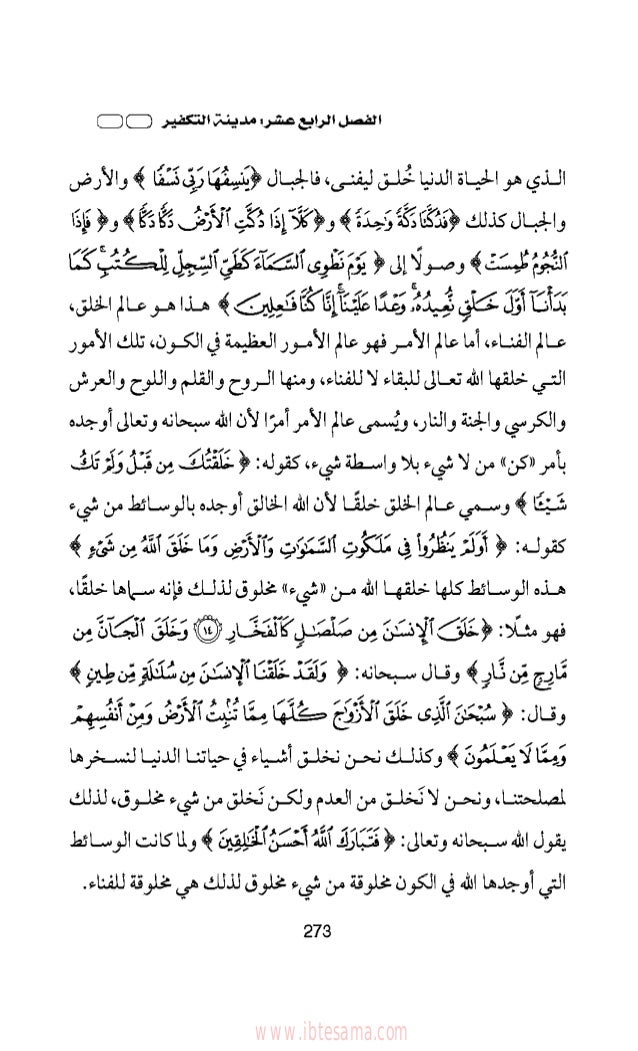 الفصل الرابع عشر: مدينة التكفير
الـذي هو الحيـاة الدنيا خُلـق ليفنـى، فالجبـال ﴿يَنسِفُهَا رَبِّي نَسْفًا﴾ والأرض
والجبـال كذلك ﴿فَدُكَّتَا دَكَّةً وَٰحِدَةً﴾ و﴿كَلَّآ إِذَا دُكَّتِ ٱلْأَرْضُ دَكًّا دَكًّا﴾ و﴿فَإِذَا
ٱلنُّجُومُ طُمِسَتْ﴾ وصـولًا إلى ﴿يَوْمَ نَطْوِى ٱلسَّمَآءَ كَطَىِّ ٱلسِّجِلِّ لِلْكُتُبِ ۚ كَمَا
بَدَأْنَآ أَوَّلَ خَلْقٍ نُّعِيدُهُۥ ۚ وَعْدًا عَلَيْنَآ ۚ إِنَّا كُنَّا فَٰعِلِينَ﴾ هـذا هـو عـالم الخلق،
عـالم الفنـاء، أما عالم الأمـر فهو عالم الأمـور العظيمة في الكـون، تلك الأمور
التـي خلقها الله تعـالى للبقاء لا للفناء، ومنها الـروح والقلم واللوح والعرش
والكرسي والجنة والنار، ويُسمى عالم الأمر أمرًا لأن الله سبحانه وتعالى أوجده
بأمر «كن» من لا شيء بلا واسـطة شيء، كقوله: ﴿خَلَقْتُكَ مِن قَبْلُ وَلَمْ تَكُ
شَيْـًٔا﴾ وسـمي عـالم الخلق خلقًـا لأن الله الخالق أوجده بالوسـائط من شيء
كقولـه: ﴿أَوَلَمْ يَنظُرُوا۟ فِى مَلَكُوتِ ٱلسَّمَٰوَٰتِ وَٱلْأَرْضِ وَمَا خَلَقَ ٱللَّهُ مِن شَىْءٍ﴾
هـذه الوسـائط كلها خلقهـا الله مـن «شيء» مخلوق لذلـك فإنه سـماها خلقًـا،
فهو مثـلًا: ﴿خَلَقَ ٱلْإِنسَٰنَ مِن صَلْصَٰلٍ كَٱلْفَخَّارِ ١٤ وَخَلَقَ ٱلْجَآنَّ مِن
مَّارِجٍ مِّن نَّارٍ﴾ وقـال سـبحانه: ﴿وَلَقَدْ خَلَقْنَا ٱلْإِنسَٰنَ مِن سُلَٰلَةٍ مِّن طِينٍ﴾
وقـال: ﴿سُبْحَٰنَ ٱلَّذِى خَلَقَ ٱلْأَزْوَٰجَ كُلَّهَا مِمَّا تُنۢبِتُ ٱلْأَرْضُ وَمِنْ أَنفُسِهِمْ
وَمِمَّا لَا يَعْلَمُونَ﴾ وكذلـك نحـن نخلـق أشـياء في حياتنـا الدنيـا لنسـخرها
لمصلحتنـا، ونحـن لا نَخلـق من العدم ولكـن نَخلق من شيء مخلـوق، لذلك
يقول الله سـبحانه وتعالى: ﴿فَتَبَارَكَ ٱللَّهُ أَحْسَنُ ٱلْخَٰلِقِينَ﴾ ولما كانت الوسـائط
التي أوجدها الله في الكون مخلوقة من شيء مخلوق لذلك هي مخلوقة للفناء.
273
www.ibtesama.com